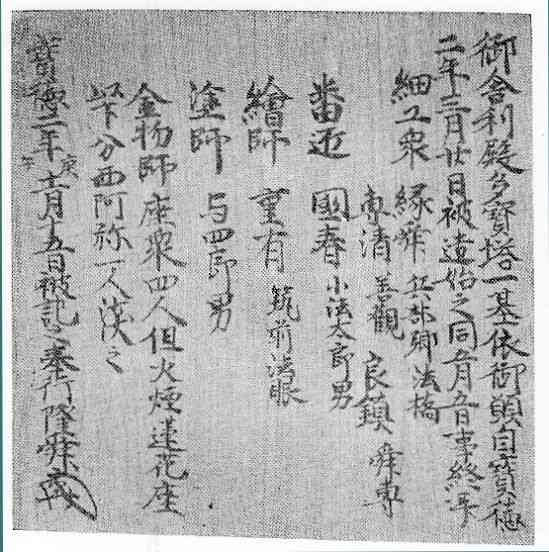 御舎利殿多寳塔一基依御願自寳徳
二年三月廿日被造始之同五月五日事終畢
細工衆 縁舜 兵部卿法橋
専清 觀 良鎮 舜専
番匠 國春 小法太郎男
繪師 重有 筑前法眼
塗師 与四郎男
金物師座衆四人但火煙蓮花座
以下分西阿弥一人沙汰之
寳徳二年庚午六月十五日被記之奉行隆舜